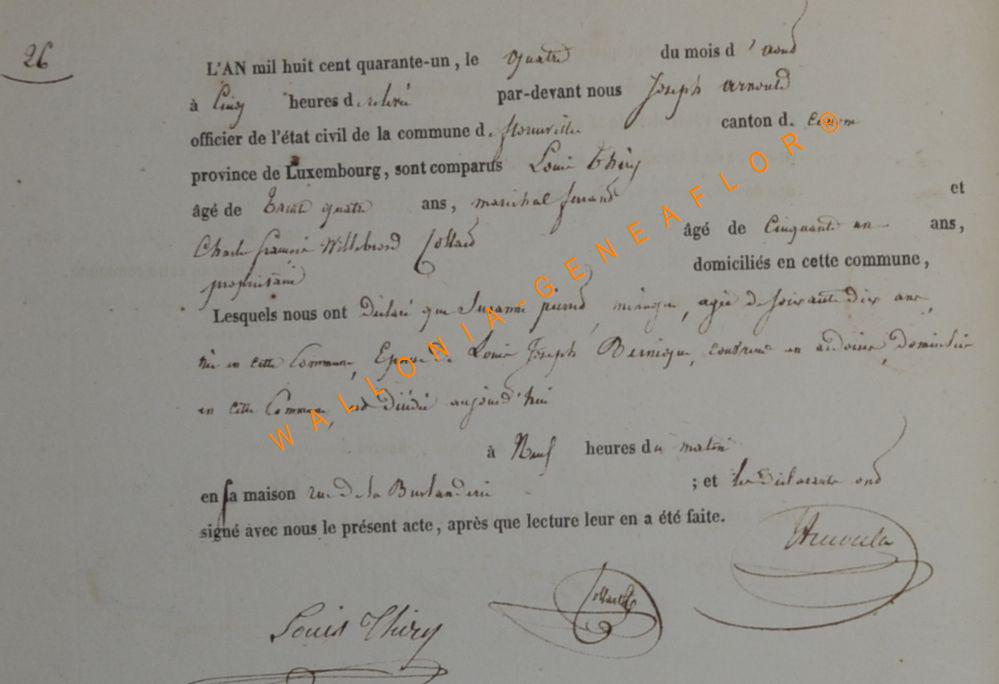 26
L'AN mil huit cent quarante-un, le quatre du mois d'aout
à Cinq heures de relevé par-devant nous Joseph Arnould
officier de l'état civil de la commune d. florenville canton d.
province de Luxembourg, sont comparus Louis Thiry
âgé de trente quatre ans, maréchal ferrand et
Charles françois Willebrord Collard âgé de Cinquante un ans,
propriétaire domiciliés en cette commune,
Lesquels nous ont déclaré que Suzanne pierrard, ménagère, agée de soixante dix ans,
née en cette Commune, Epouse de Louis Joseph Bernique, couvreur en ardoises, domicilié
en cette Commune, est décédée aujourd'hui
à Neuf heures du matin
en sa maison rue de la ; et les déclarants ont
signé avec nous le présent acte, après que lecture leur en a été faite.
Arnould
Collard
Louis Thiry
WALLONIA-GENEAFLOR ®